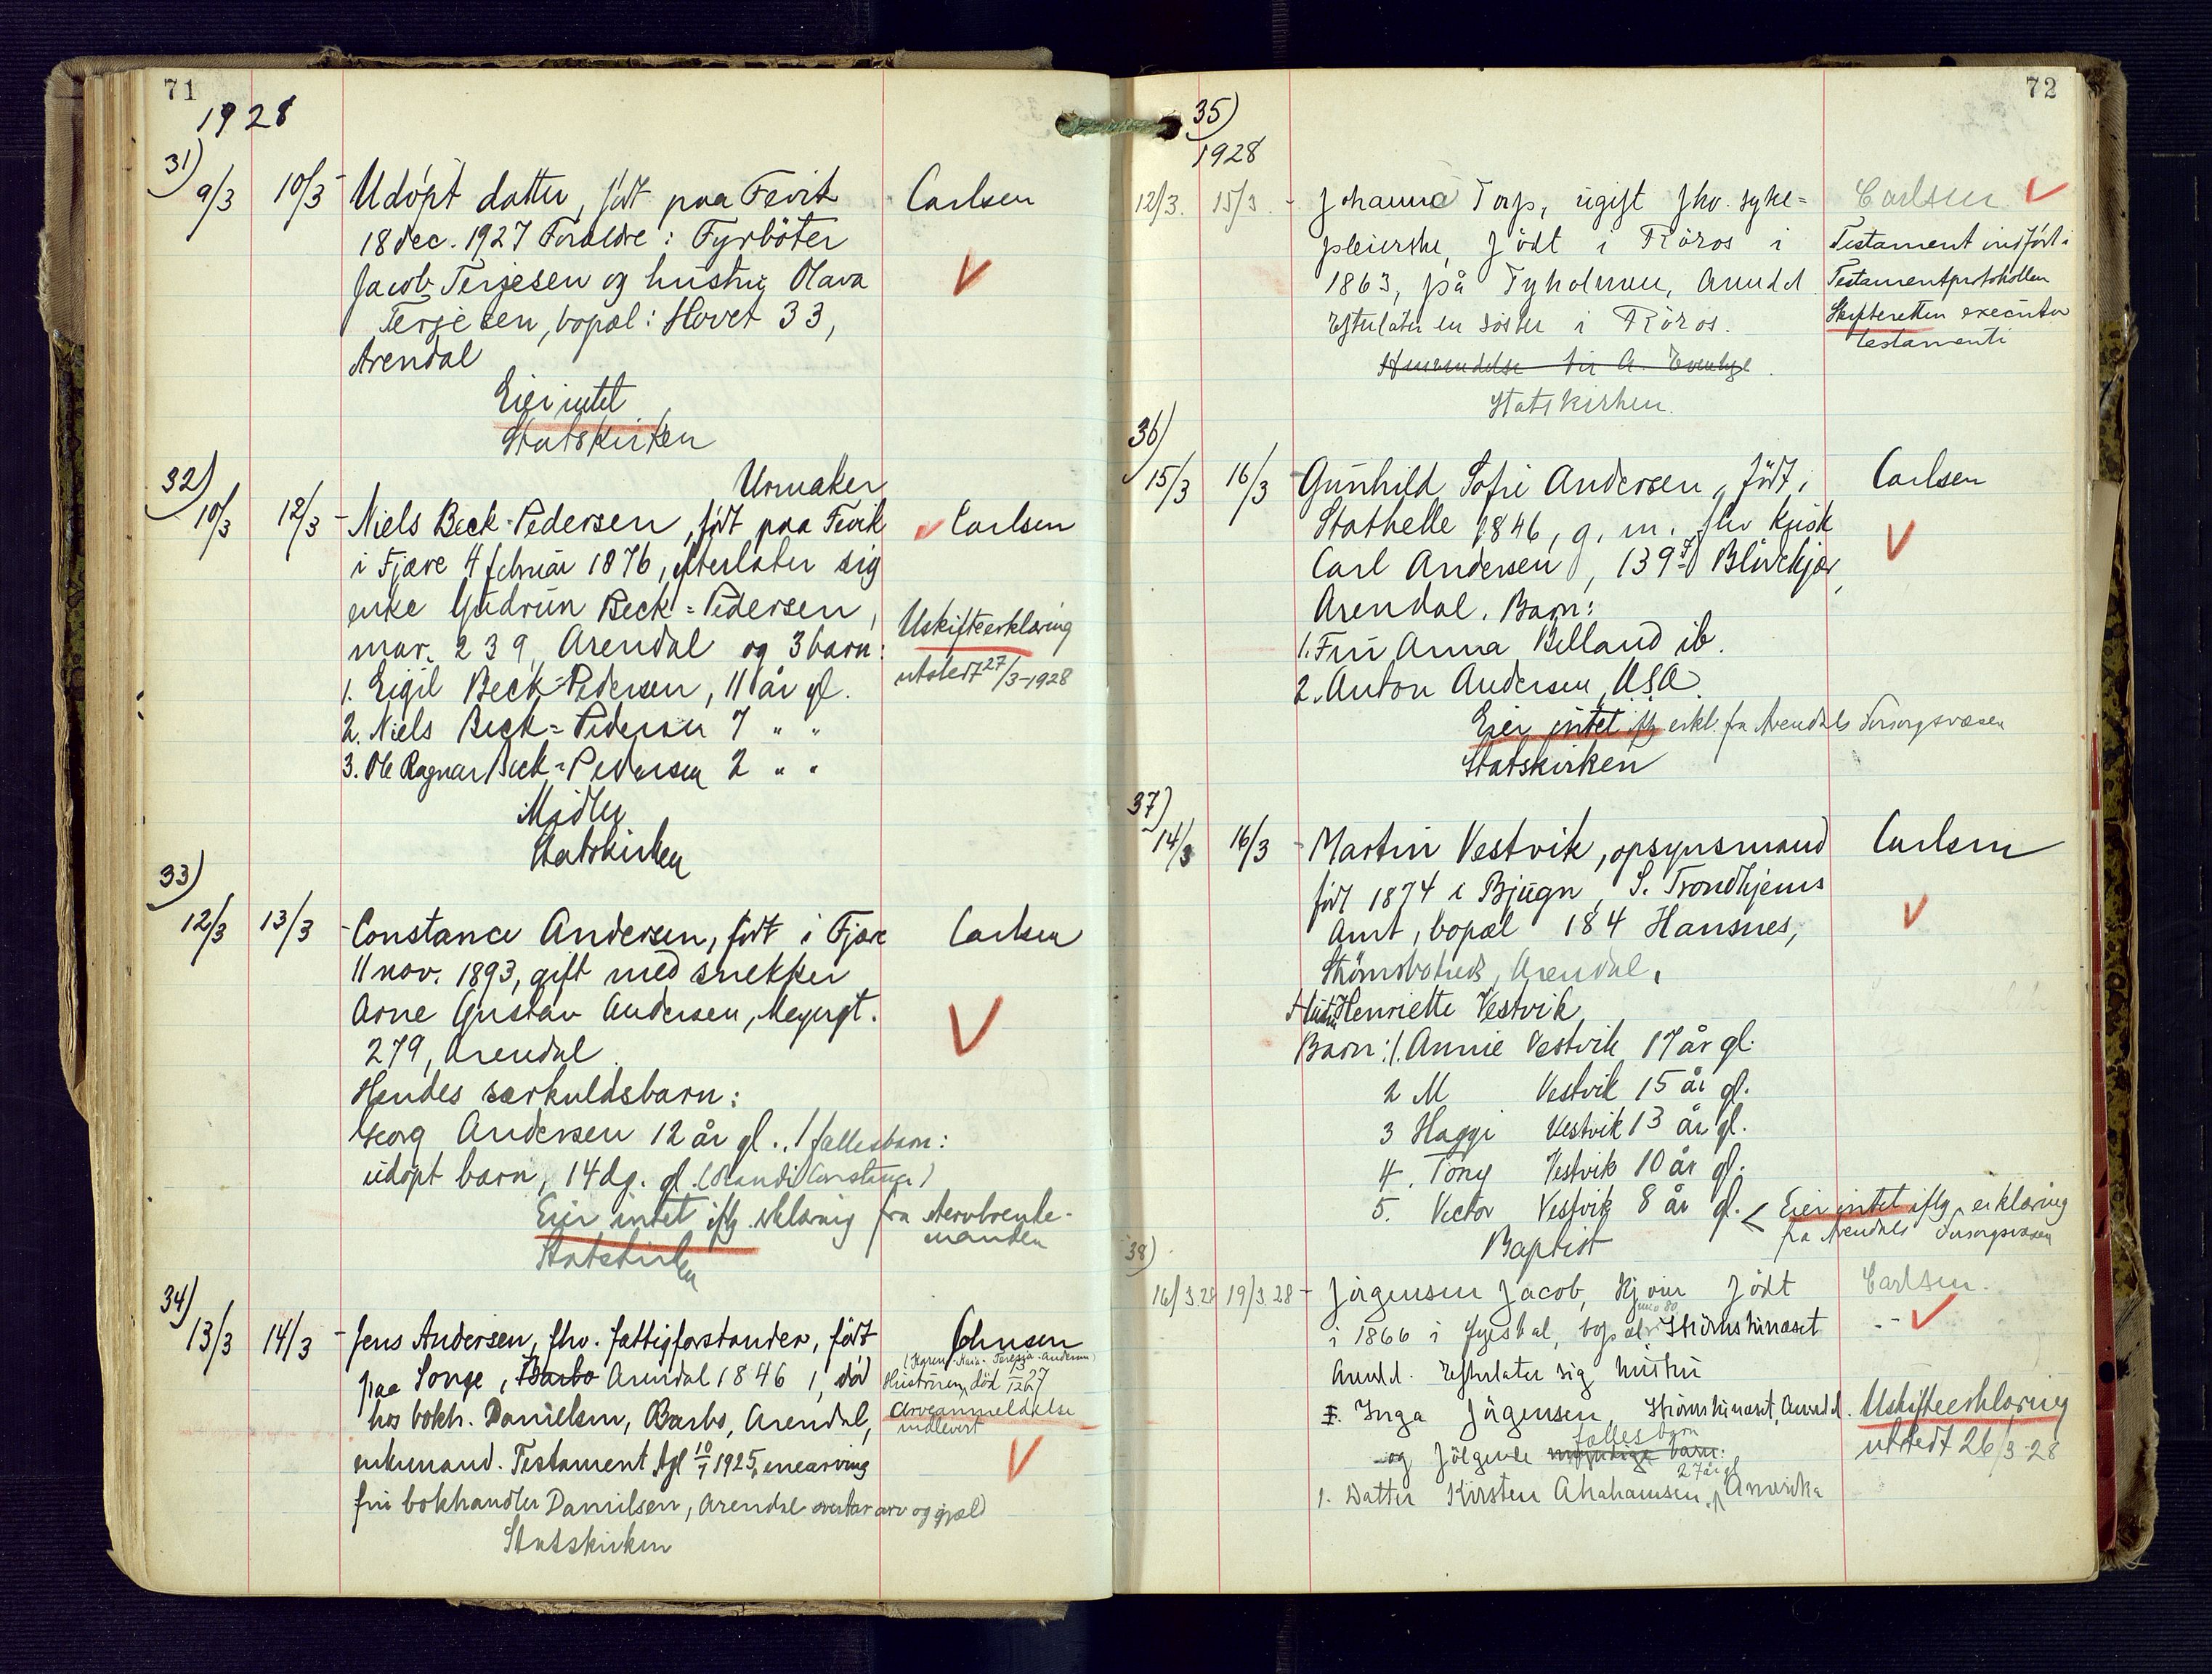 71
1928
31)
9/3 10/3 - Udöpt datter, født paa Fevik Carlsen
18 dec. 1927 Foraldre: Fyrböter
Jacob Terjesen og hustru Olava
Terjesen, bopæl: Hovet 33,
Arendal
Eier intet
Statskirken
32) Urmaker
10/3 12/3 - Niels Beck-Pedersen, født paa Fevik Carlsen
i Fjære 4 februar 1876, efterlater sig
enke Gudrun Beck=Pedersen,
mar. 239, Arendal og 3 barn: Uskifteerklæring
1. Eigil Beck=Pedersen, 11 år gl. utstedt 27/3-1928
2. Niels Beck=Pedersen 7 " "
3. Ole Ragnar Beck=Pedersen 2 " "
Midler
Statskirken
33)
12/3 13/3 - Constance Andersen, født i Fjære Carlsen
11 nov. 1893, gift med snekker
Arne Gustav Andersen, Meyergt.
279, Arendal.
Hendes særkuldsbarn:
Georg Andersen 12 år gl., 1 fællesbarn:
udøpt barn, 14 dg. gl. (Randi Constance)
Eier intet iflg. erklæring fra
manden
Statskirken
34)
13/3 14/3 - Jens Andersen, fhv. fattigforstander, født Johnsen
paa Songe, Barbo Arendal 1846, død Hustruen, død
hos bokh. Danielsen, Barbo, Arendal, Arveanmeldelse
indlevert
enkemand. Testament tgl 10/7 1925, enearving
fru bokhandler Danielsen, Arendal overtar arv og gjæld
Statskirken
72
35)
1928
12/3. 15/3. - Johanne Torp, ugift fhv. syke= Carlsen
pleierske, født i Röros i Testament indført i
1863, på Tyholmen, Arendal. Testamentprotokollen
Efterlater en söster i Röros. Skifteretten executor
testamenti
Statskirken.
36)
15/3 16/3 - Gunhild Sofie Andersen, født i Carlsen
Stathelle 1846, g. m. fhv. kusk
Carl Andersen, 139 Blödekjær,
Arendal. Barn:
1. Fru Anna Belland ib.
2. Anton Andersen, USA.
Eier intet iflg erkl. fra Arendals Forsorgsvæsen
Statskirken
37)
14/3 16/3 - Martin Vestvik, opsynsmand Carlsen
født 1874 i Bjugn, S. Trondhjems
Amt, bopæl 184 Hansnes,
Strömsbosted, Arendal.
Hustru Henriette Vestvik
Barn: 1. Annie Vestvik 17 år gl.
2 M Vestvik 15 år gl.
3 Haggi Vestvik 13 år gl.
4. Tony Vestvik 10 år gl.
5. Vector Vestvik 8 år gl. < Eier intet iflg. erklæring
fra Arendals Forsorgsvæsen
Baptist
38)
16/3.28 19/3.28 - Jörgensen Jacob, födt Carlsen.
i 1866 i Gjestal, bopæl Strömsbunæset
Arendal. Efterlater sig hustru
I. Inga Jörgensen, Strömsbunæset, Arendal. Uskifteerklæring
fælles barn utstedt 26/3-28
og fölgende myndige barn:
27 år gl
1. Datter Kirsten Abrahamsen, Amerika